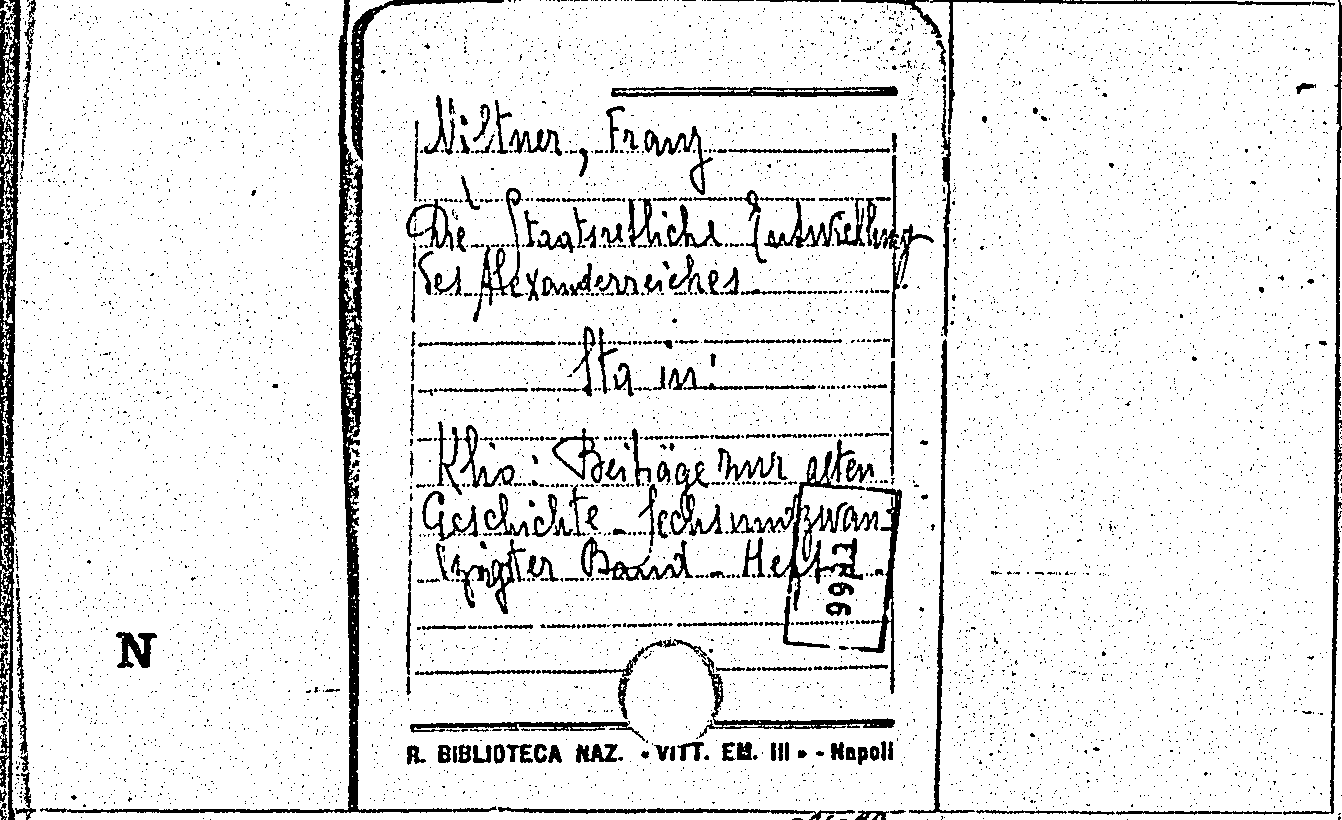 Niltner, Franz
Die Staatsretliche Entwicklung
des Alexanderreiches.
Sta in:
Klio: Beiträge zur alten
Geschichte - Sechsundzwan-
zigster Band - Heft 1.
R. BIBLIOTECA NAZ. « VITT. EM. III » - Napoli
N